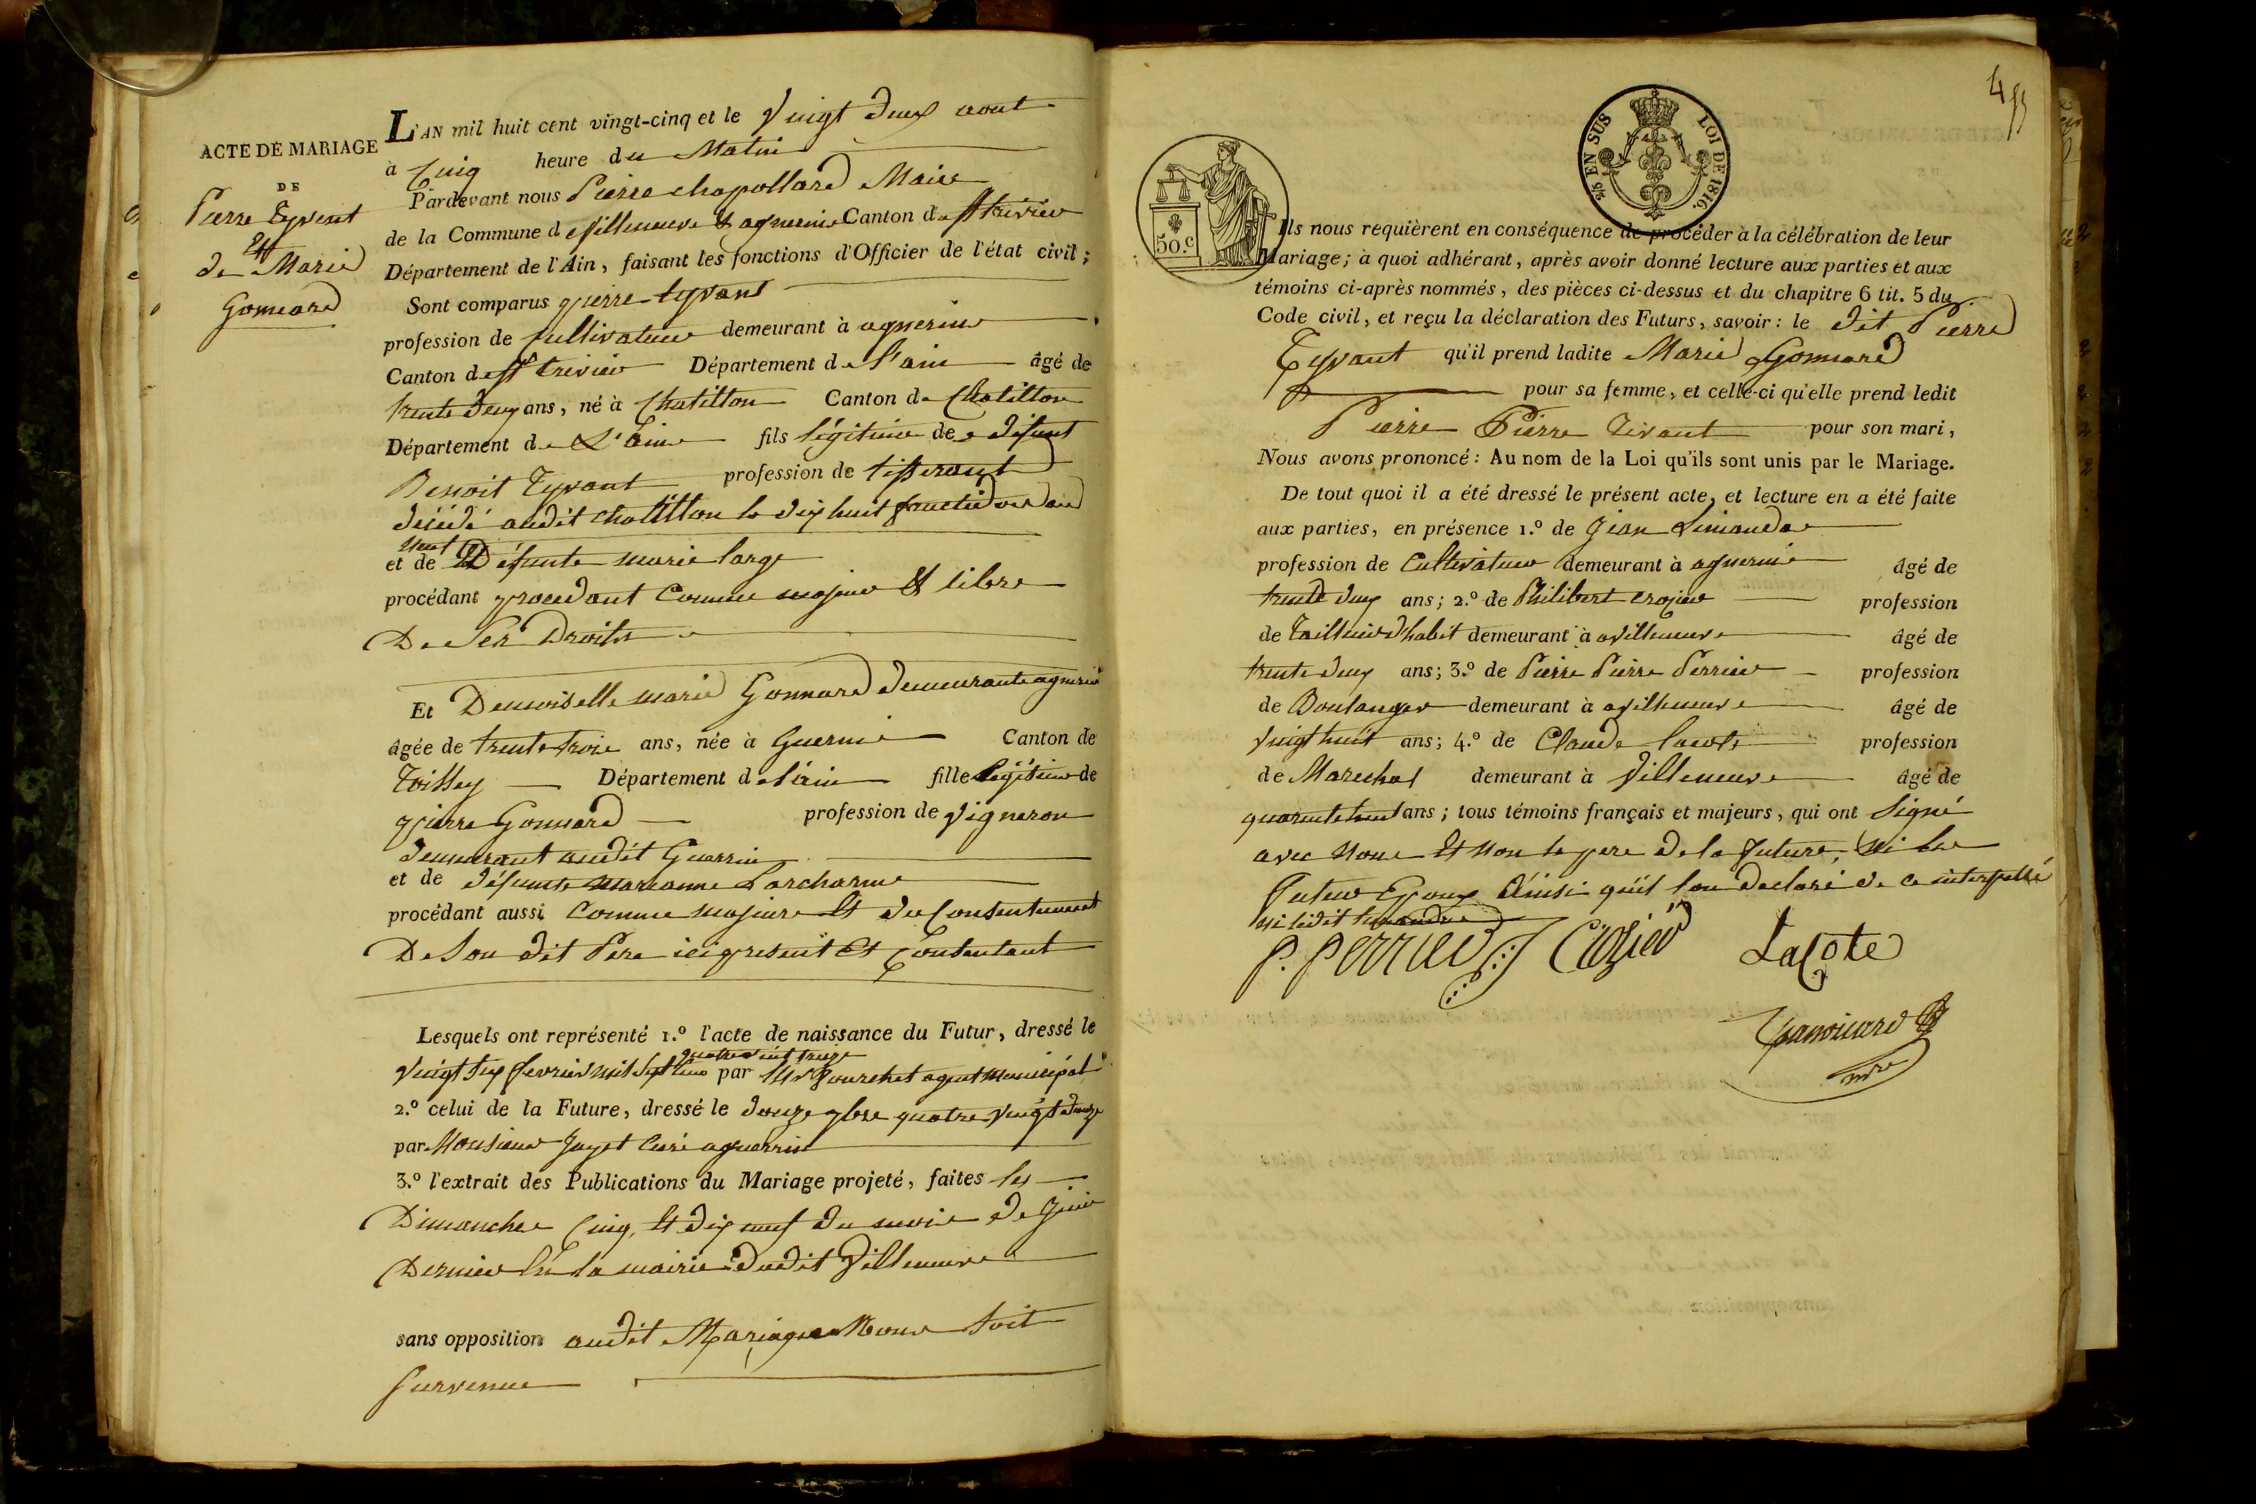 ACTE DE MARIAGE
DE
Pierre Tyvent
Et
de Marie
Gonnard
L'AN mil huit cent vingt-cinq et le Vingt deux aout
à Cinq heure du Matin
Pardevant nous Pierre chapollard Maire
de la Commune de villeneuve & agnerin Canton de St trivier
Département de l'Ain, faisant les fonctions d'Officier de l'état civil;
Sont comparus pierre tyvant
profession de Cultivateur demeurant à agnerin
Canton de St trivier Département de l'ain âgé de
trente deux ans, né à Chatillon Canton de Chatillon
Département de L'ain fils légitime de defunt
Benoit Tyvant profession de tisserant
décédé audit chatillon le dix huit fructidor an
neuf
et de Défunte marie large
procédant procedant Comme majeur & libre
De Ses Droits
Et Demoiselle marie Gonnard demeurante agnerin
âgée de trente trois ans, née à Guerrin Canton de
Toissey Département de l'ain fille légitime de
pierre Gonnard profession de vigneron
demeurant audit Guerrin
et de défunte marianne Larcharme
procédant aussi Comme majeure Et du Consentement
De Son dit Pere ici present Et Consentant
Lesquels ont représenté 1.º l'acte de naissance du Futur, dressé le
quatre vingt treize
Vingt six fevrier mil sept cens par Mr Bourchet agent municipal
2.º celui de la Future, dressé le douze 9bre quatre vingt douze
par Monsieur Jayet Curé aguerrin
3.º l'extrait des Publications du Mariage projeté, faites les
Dimanches Cinq, Et dix neuf du mois de Juin
Dernier En la mairie dudit Villeneuve
sans opposition audit Mariage Nous soit
survenue
4
50.c
2/8 EN SUS LOI DE 1816.
Ils nous requièrent en conséquence de procéder à la célébration de leur
Mariage; à quoi adhérant, après avoir donné lecture aux parties et aux
témoins ci-après nommés, des pièces ci-dessus et du chapitre 6 tit. 5 du
Code civil, et reçu la déclaration des Futurs, savoir: le dit Pierre
Tyvant qu'il prend ladite Marie Gonnard
pour sa femme, et celle-ci qu'elle prend ledit
Pierre Pierre Tivant pour son mari,
Nous avons prononcé: Au nom de la Loi qu'ils sont unis par le Mariage.
De tout quoi il a été dressé le présent acte, et lecture en a été faite
aux parties, en présence 1.º de Jean Limandas
profession de Cultivateur demeurant à agnerin âgé de
trente deux ans; 2.º de Philibert crozier profession
de Tailleur d'habit demeurant à villeneuve âgé de
trente deux ans; 3.º de Pierre Pierre Perrier profession
de Boulanger demeurant à villeneuve âgé de
vingt huit ans; 4.º de Claude lacote profession
de Marechal demeurant à Villeneuve âgé de
quarente huit ans; tous témoins français et majeurs, qui ont Signé
avec nous Et non le pere de la future, Ni les
futurs Epoux Ainsi qu'il l'on declaré de ce interpellé
ni ledit limandas
P. Perrier Crozier LaCote
mre